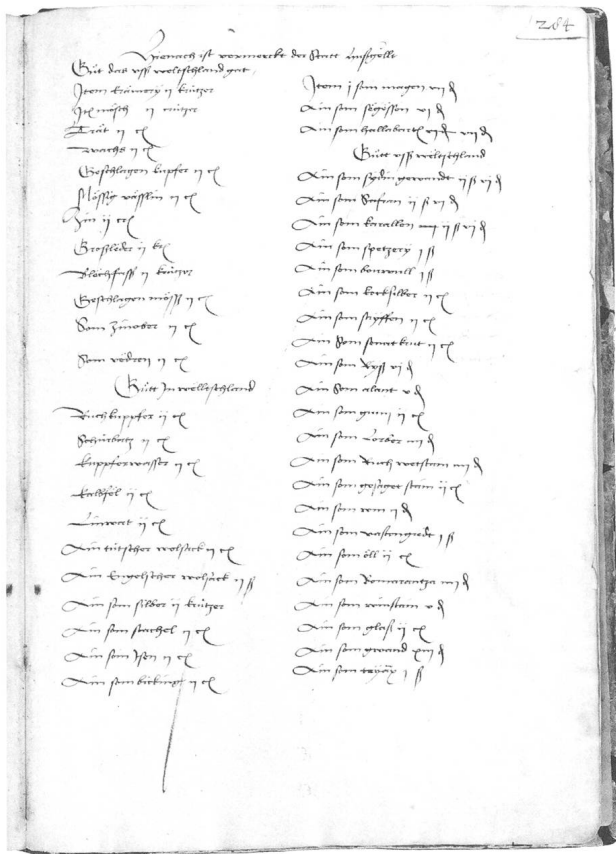 284
Hienach ist vermerckt der Statt
Gůt das uss weltschland gat
Item krämery ij krützer
Itm mösch ij krützer
Trät ij cr
Wachs ij cr
Geschlagen kupfer ij cr
Mössig vässlin ij cr
Zin ij cr
Großleder ij kr
ij krützer
Geschlagen möss ij cr
Som Zinober ij cr
Som vedren ij cr
Gůtt In welltschland
Ruchkuppfer ij cr
ij cr
kuppferwasser ij cr
kalbfel ij cr
Linwat ij cr
Ain tütscher wolsack ij cr
Ain Engelscher wolsack ij ß
Ain som silber ij krützer
Ain som stachel ij cr
Ain som Isen ij cr
Ain som bicking ij cr
Item j som magen vij d
Ain som segessen vj d
Ain som hallabart vj d vij d
Gůtt uss weltschland
Ain som sydin gewandt ij ß vj d
Ain som Safran ij ß vj d
Ain som karallen ij ß vj d
Ain som spetzery j ß
Ain som bonwull j ß
Ain som kecksilber ij cr
Ain som sayffen ij cr
Ain Som ij cr
Ain som Ryß vj d
Ain Som alant v d
Ain som gumj ij cr
Ain som Lorber iiij d
Ain som Ruch wetstain iiij d
Ain som stain ij cr
Ain som d
Ain som j ß
Ain som öll ij cr
Ain som Pomarantza iiij d
Ain som winstain v d
Ain som glaß ij cr
Ain som gwand xiij d
Ain som j ß